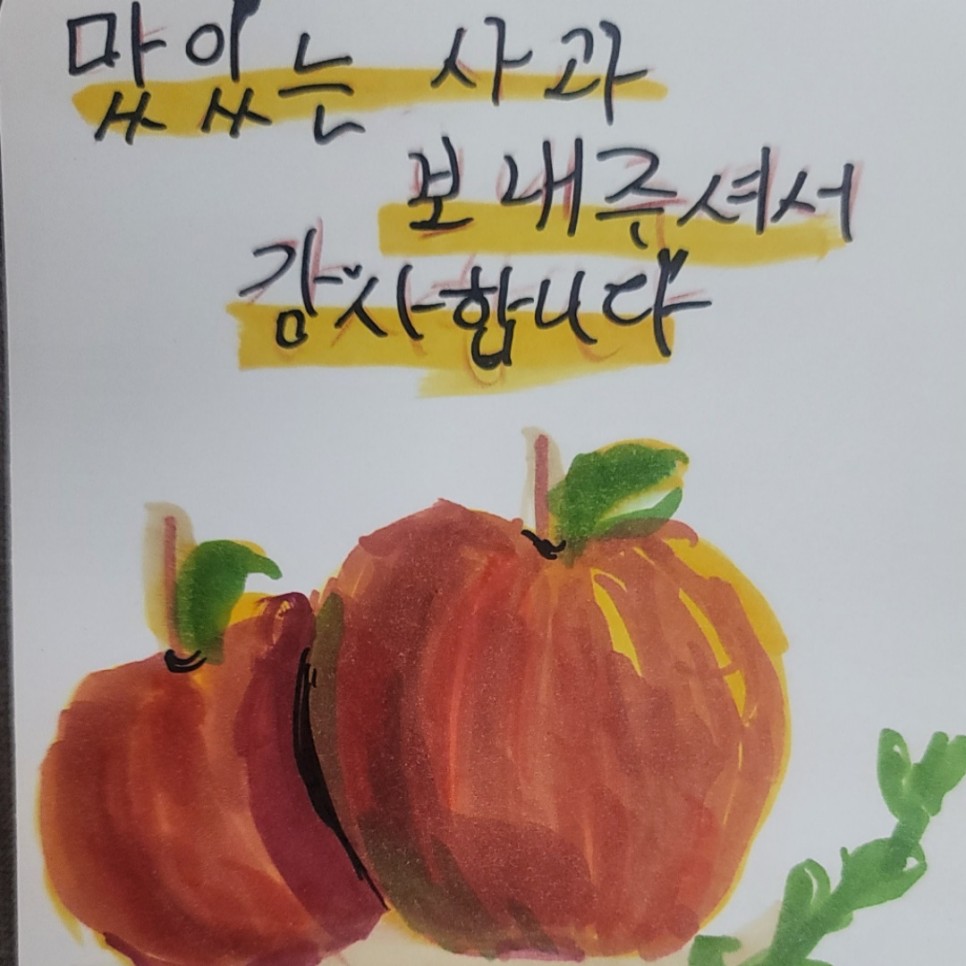 맛있는 사과
보내주셔서
감사합니다